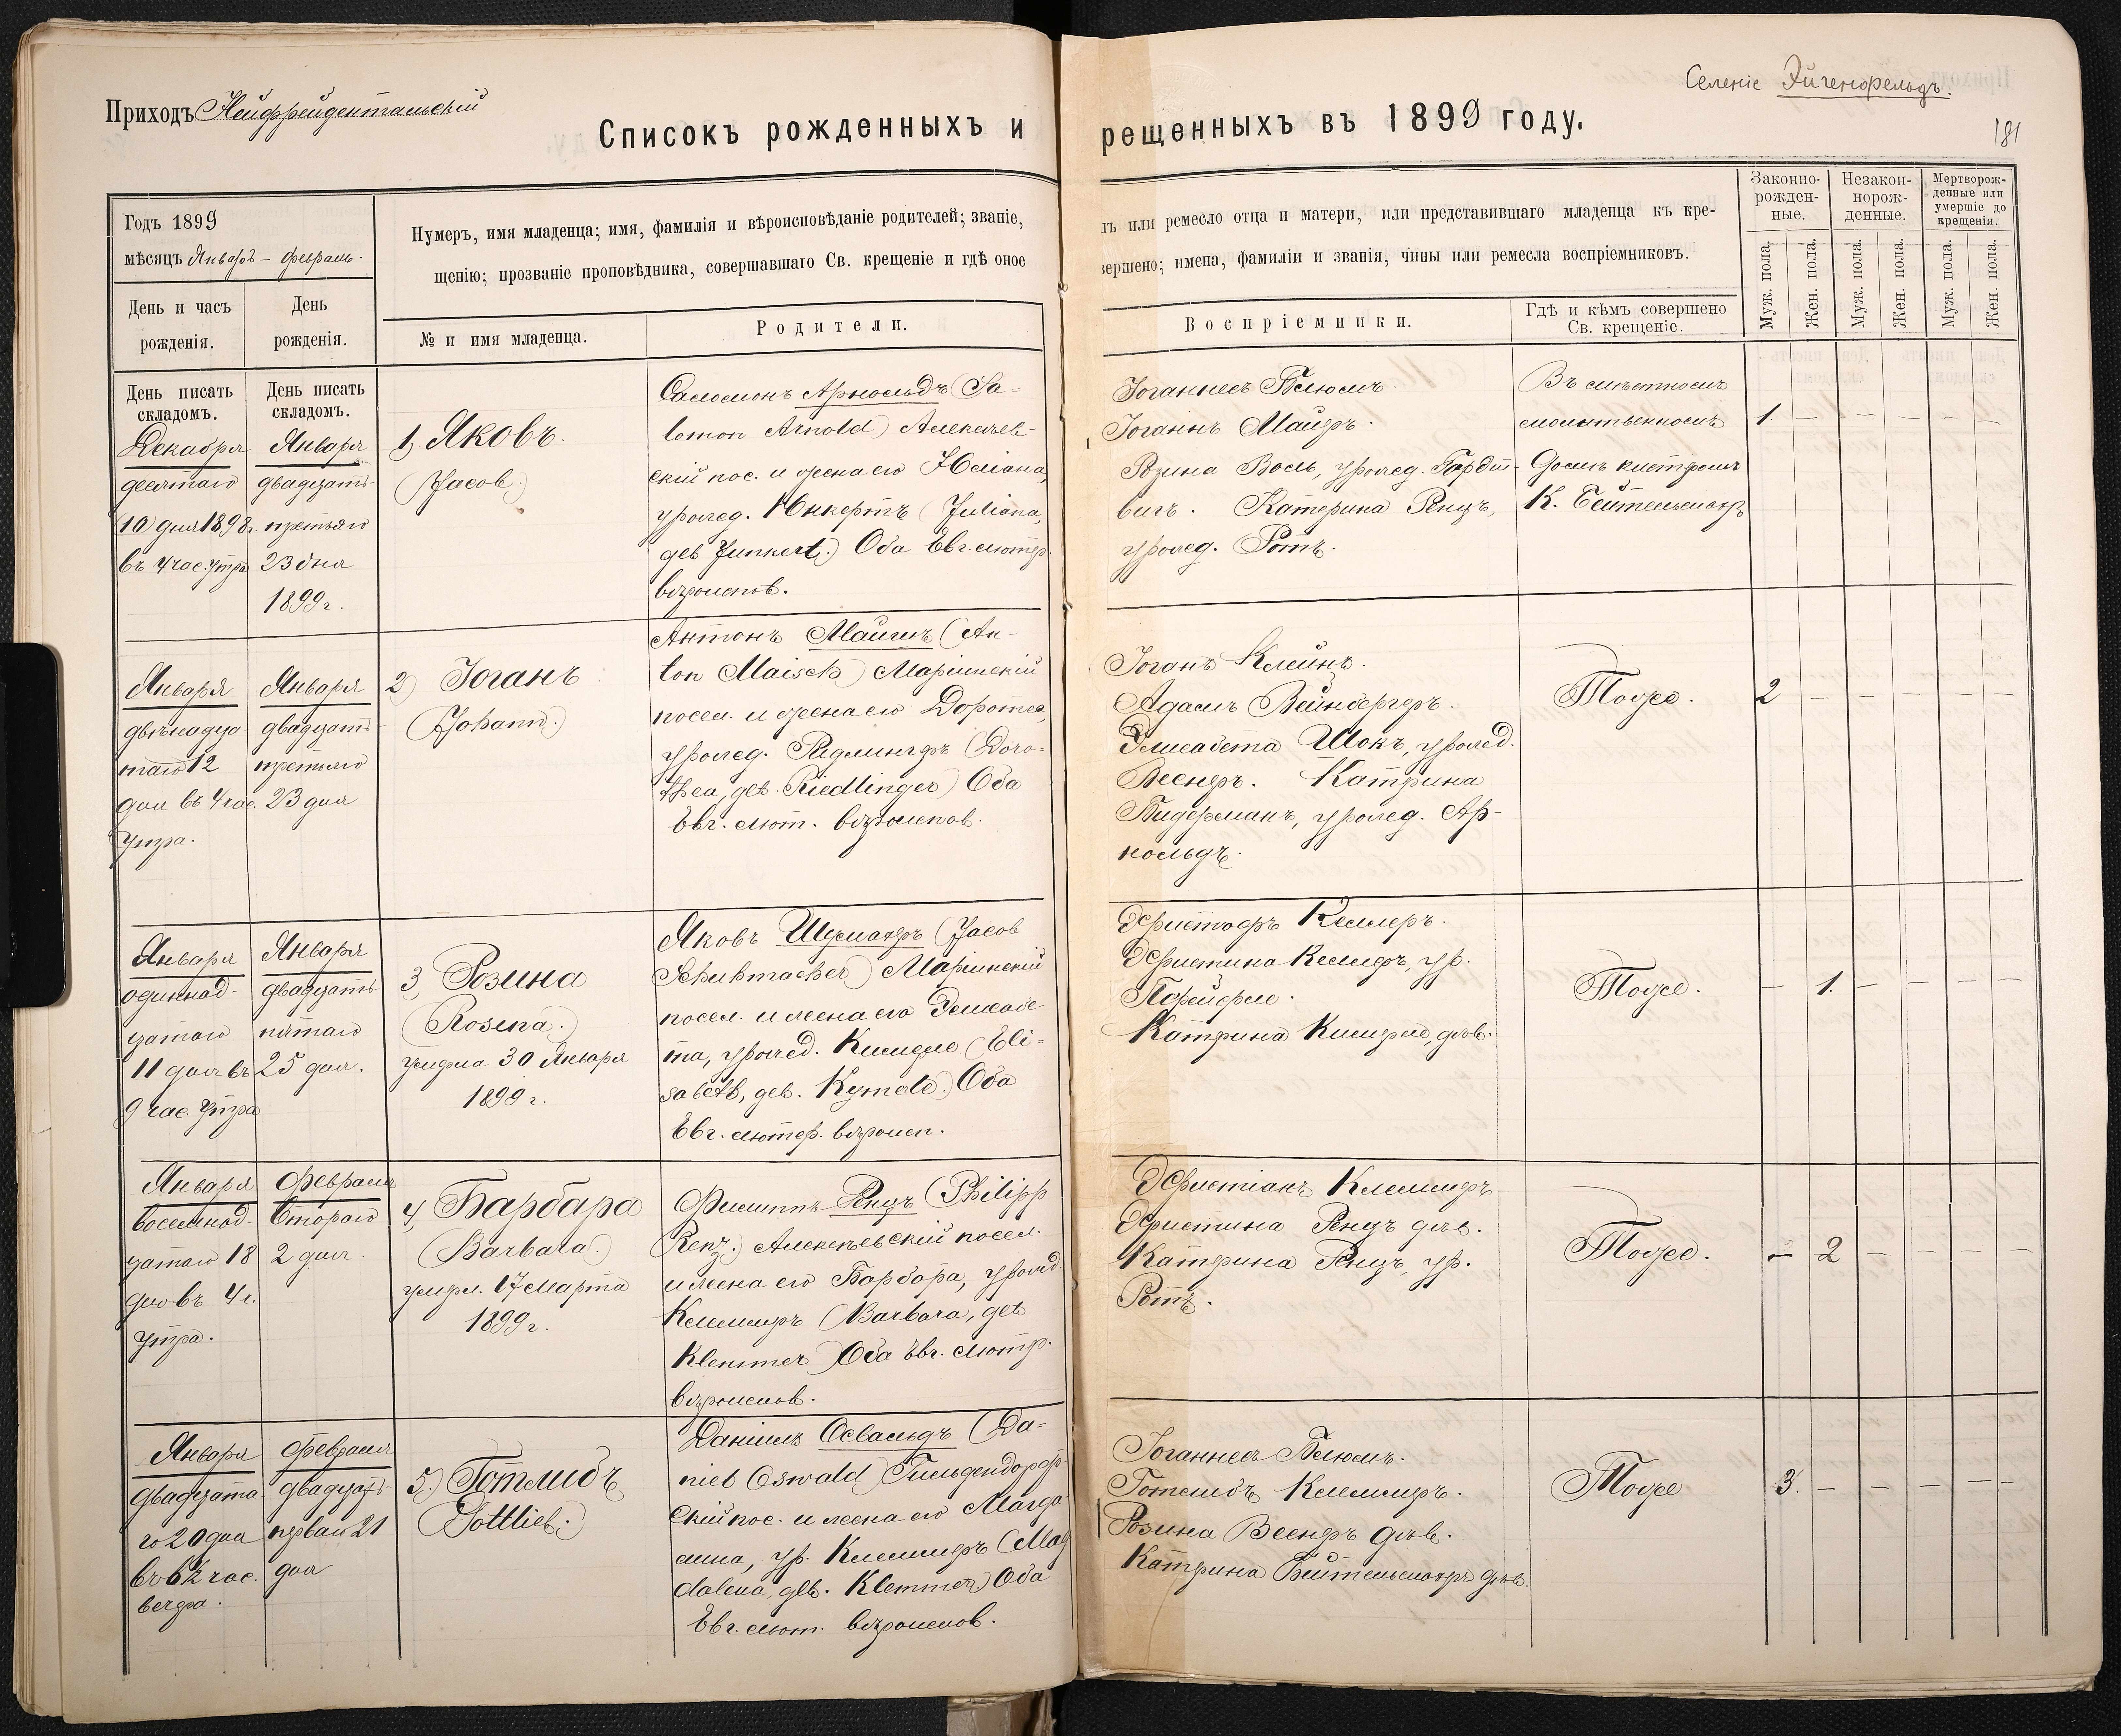 Приходъ Нейфрейдентальскій
Селеніе Эйгенфельдъ.
Списокъ рожденныхъ и
рещенныхъ въ 1899 году.
181
Годъ 1899
мѣсяцъ Январь – февраль.
День и часъ
рожденія.
День
рожденія.
Нумеръ, имя младенца; имя, фамилія и вѣроисповѣданіе родителей; званіе,
щенію; прозваніе проповѣдника, совершавшаго Св. крещеніе и гдѣ оное
№ и имя младенца.
Родители.
нъ или ремесло отца и матери, или представившаго младенца къ кре-
вершено; имена, фамиліи и званія, чины или ремесла воспріемниковъ.
Воспріемники.
Гдѣ и кѣмъ совершено
Св. крещеніе.
Законно-
рожден-
ные.
Незакон-
норож-
денные.
Мертворож-
денные или
умершіе до
крещенія.
Муж. пола.
Жен. пола.
Муж. пола.
Жен. пола.
Муж. пола.
Жен. пола.
День писать
складомъ.
День писать
складомъ.
Декабря
десятаго
10 дня 1898г.
въ 4 час. утра
Января
двадцать
третьяго
23 дня
1899г.
1, Яковъ.
(Jacob.)
Саломонъ Арнольдъ (Sa-
lomon Arnold) Алексѣев-
скій пос. и жена его Юліана,
урожд. Юнкертъ (Juliana,
geb Junkert.) Оба Евг. лютер.
вѣроисповѣ.
Іоганнесъ Блюмъ.
Іоганнъ Майеръ.
Розина Воль, урожд.
Катерина Ренцъ,
урожд. Ротъ.
Въ мѣстномъ
молитвенномъ
Домѣ кистромъ
К. Бейтельсмахр
1. – – – – –
Января
двѣнадца
таго 12
дня въ 4 час.
утра.
Января
двадцать
третьяго
23 дня
2) Іоганъ
(Johann.)
Антонъ Майшъ (An-
ton Maisch) Маріинскій
посел. и жена его Доротея,
урожд. Ридлингеръ (Doro-
thea, geb. Riedlinger) Оба
Евг. лют. вѣроиспов.
Іоганъ Клейнъ.
Адамъ Вейнбергеръ.
Элисабета Шокъ, урожд.
Веснеръ. Катрина
Бидерманъ, урожд. Ар-
нольдъ.
Тоже.
2 – – – – –
Января
одиннад-
цатаго
11 дня въ
9 час. утра
Января
двадцать
пятаго
25 дня.
3, Розина
(Rosina.)
умерла 30 Января
1899 г.
Яковъ Шумахеръ (Jacob
Schuhmacher) Маріинскій
посел. и жена его Элисабе-
та, урожд. Кимеле (Eli-
sabeth, geb. Kymele.) Оба
Евг. лютер. вѣроисп.
Христофъ Келлеръ.
Христина Келлеръ, ур.
Пфейфле.
Катрина Кимерле, дѣв.
Тоже.
– 1. – – – –
Января
восемнад-
цатаго 18
дня въ 4 ч.
утра.
Февраля
Втораго
2 дня
4, Барбара
(Barbara.)
умерл. 17 Марта
1899г.
Филиппъ Ренцъ (Philipp
Renz.) Алексѣевскій посел.
и жена его Барбара, урожд.
Клеммеръ (Barbara, geb
Klemmer) Оба Евг. лютр.
вѣроиспов.
Христіанъ Клеммеръ
Христина Ренцъ дѣв.
Катрина Ренцъ, ур.
Ротъ.
Тоже.
– 2 – – – –
Января
двадцата
го 20 дня
въ 6½ час.
вечера.
Февраля
двадцать-
перваго 21
дня
5.) Готлибъ
(Gottlieb.)
Даніилъ Освальдъ (Da-
niel Oswald) Гильдендорф
скій пос. и жена его Магда
лина, ур. Клеммеръ (Mag
dalena, geb. Klemmer) Оба
Евг. лют. вѣроиспов.
Іоганнесъ Блюмъ.
Готлибъ Клеммеръ.
Розина Веснеръ дѣв.
Катрина Бейтельсмахръ дѣв.
Тоже
3. – – – – –